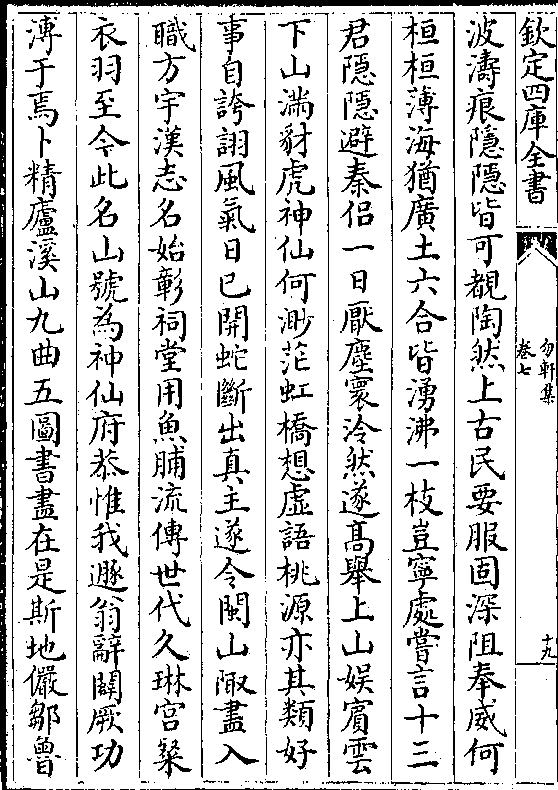 欽定四庫全書
勿軒集
卷七
十九
波濤痕隱隱皆可覩陶然上古民要服固深阻奉威何
桓桓薄海猶廣土六合皆湧沸一枝豈寧處嘗言十三
君隱隱避秦侣一日厭塵寰泠然遂髙舉上山娯賓雲
下山滿豺虎神仙何渺茫虹橋想虚語桃源亦其類好
事自誇詡風氣日已開蛇斷出真主遂令閩山陬盡入
職方宇漢志名始彰祠堂用魚脯流傳世代久琳宫粲
衣羽至今此名山號為神仙府恭惟我遯翁辭闗厥功
溥于焉卜精廬溪山九曲五圖書盡在是斯地儼鄒魯